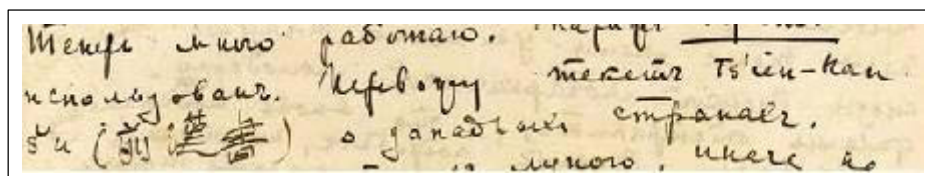 Теперь много работаю.
использованъ. Перевожу текстъ Ts'ien-Han
šu (前漢書) о западныхъ странахъ.
много, иначе не